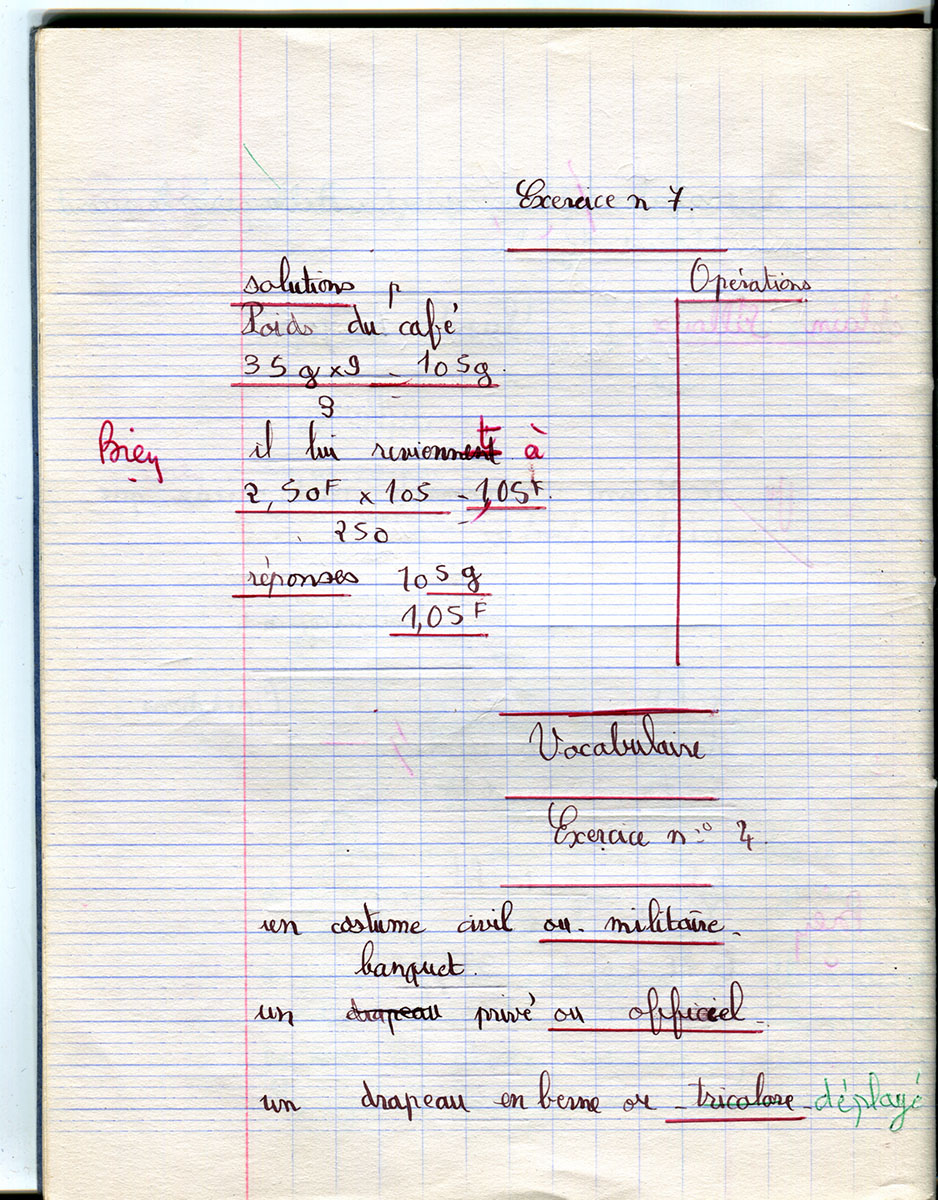 Exercice n 7.
solutions
Opérations
Poids du café
35 g x 9 = 105g
3
Bien
il lui revionnent t à
2,50F x 105 = 1,05F
250
réponses 105 g
1,05F
Vocabulaire
Exercice n° 2
un costume civil ou militaire.
banquet.
un drapeau privé ou officiel.
un drapeau en berne or tricolore déployé